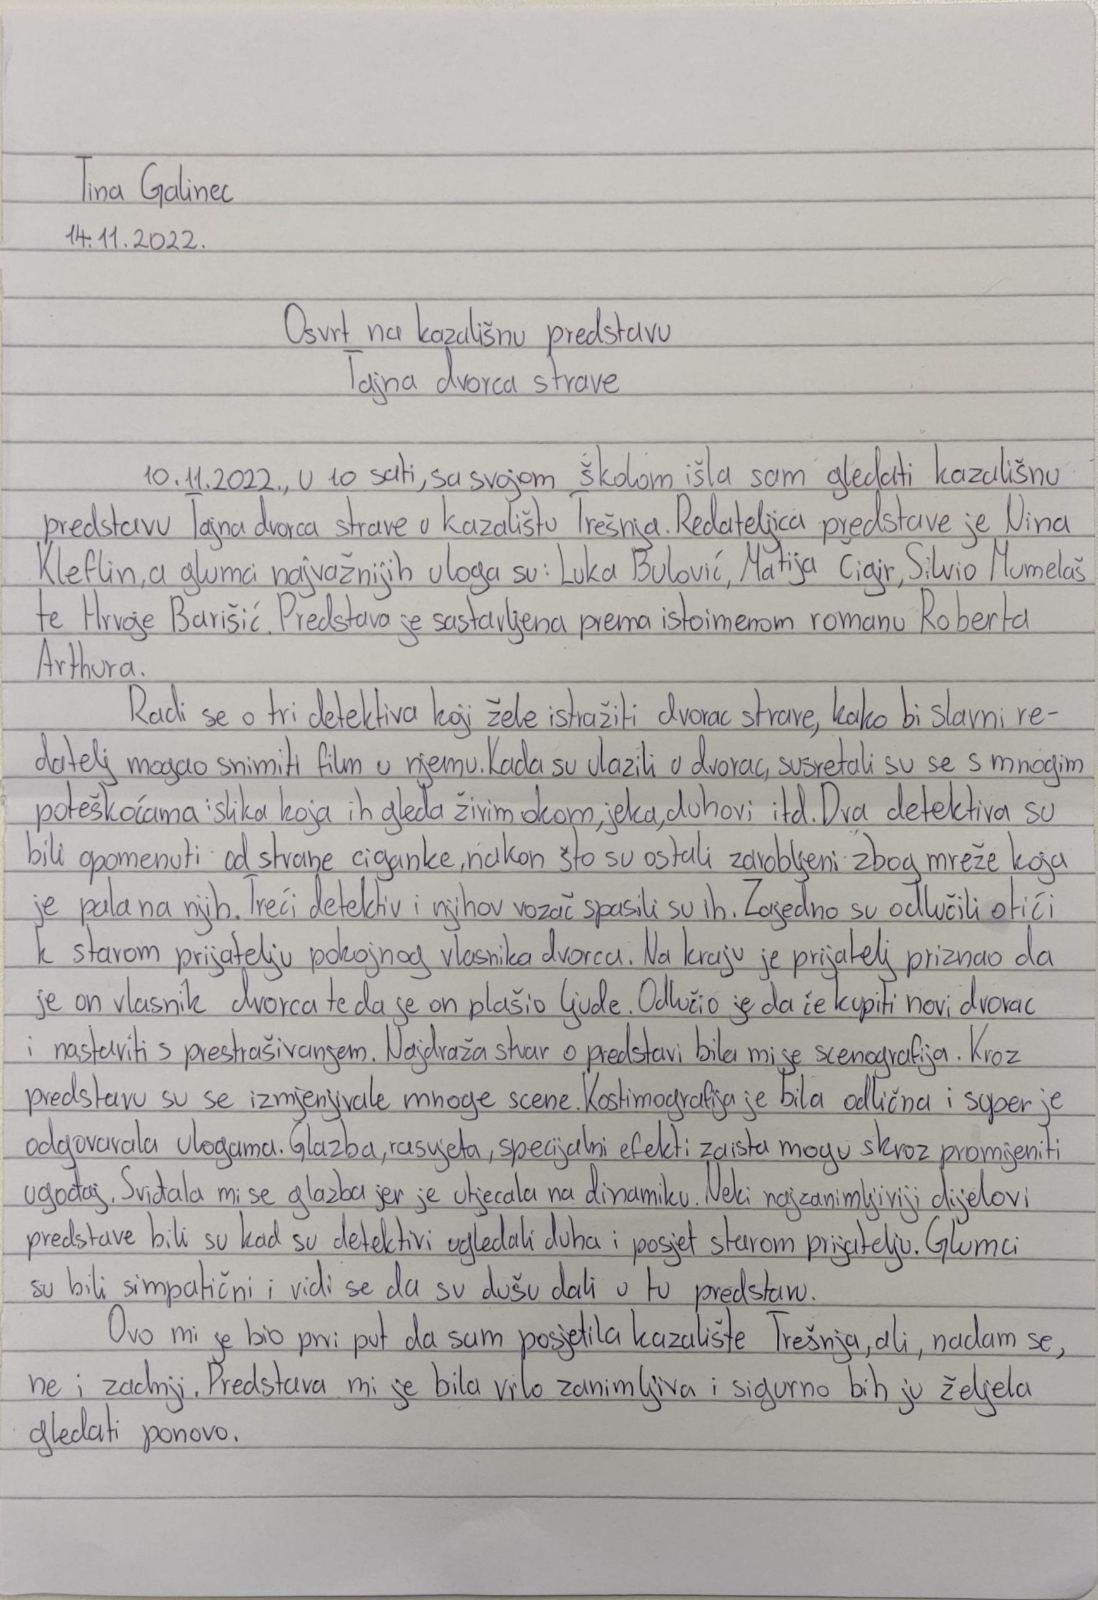 Tina Galinec
14.11.2022.
Osvrt na kazališnu predstavu
Tajna dvorca strave
10.11.2022., u 10 sati, sa svojom školom išla sam gledati kazališnu
predstavu Tajna dvorca strave u kazalištu Trešnja. Redateljica predstave je Nina
Kleflin, a glumci najvažnijih uloga su: Luka Bulović, Matija Čigir, Silvio Mumelaš
te Hrvoje Barišić. Predstava je sastavljena prema istoimenom romanu Roberta
Arthura.
Radi se o tri detektiva koji žele istražiti dvorac strave, kako bi slavni re-
datelj mogao snimiti film u njemu. Kada su ulazili u dvorac, susretali su se s mnogim
poteškoćama: slika koja ih gleda živim okom, jeka, duhovi itd. Dva detektiva su
bili opomenuti od strane ciganke, nakon što su ostali zarobljeni zbog mreže koja
je pala na njih. Treći detektiv i njihov vozač spasili su ih. Zajedno su odlučili otići
k starom prijatelju pokojnog vlasnika dvorca. Na kraju je prijatelj priznao da
je on vlasnik dvorca te da je on plašio ljude. Odlučio je da će kupiti novi dvorac
i nastaviti s prestrašivanjem. Najdraža stvar o predstavi bila mi je scenografija. Kroz
predstavu su se izmjenjivale mnoge scene. Kostimografija je bila odlična i super je
odgovarala ulogama. Glazba, rasvjeta, specijalni efekti zaista mogu skroz promijeniti
ugođaj. Sviđala mi se glazba jer je utjecala na dinamiku. Neki najzanimljiviji dijelovi
predstave bili su kad su detektivi ugledali duha i posjet starom prijatelju. Glumci
su bili simpatični i vidi se da su dušu dali u tu predstavu.
Ovo mi je bio prvi put da sam posjetila kazalište Trešnja, ali, nadam se,
ne i zadnji. Predstava mi je bila vrlo zanimljiva i sigurno bih ju željela
gledati ponovo.